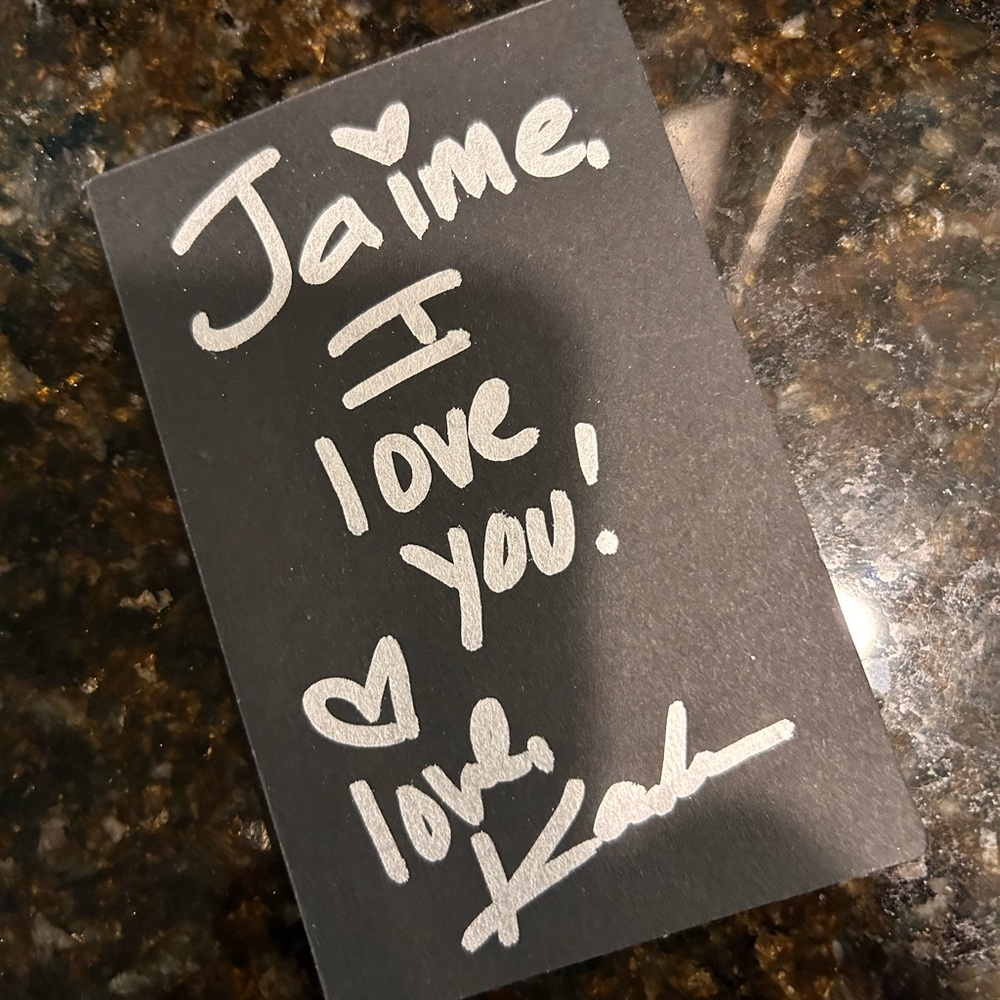 Jaime,
I
love
you!
love,